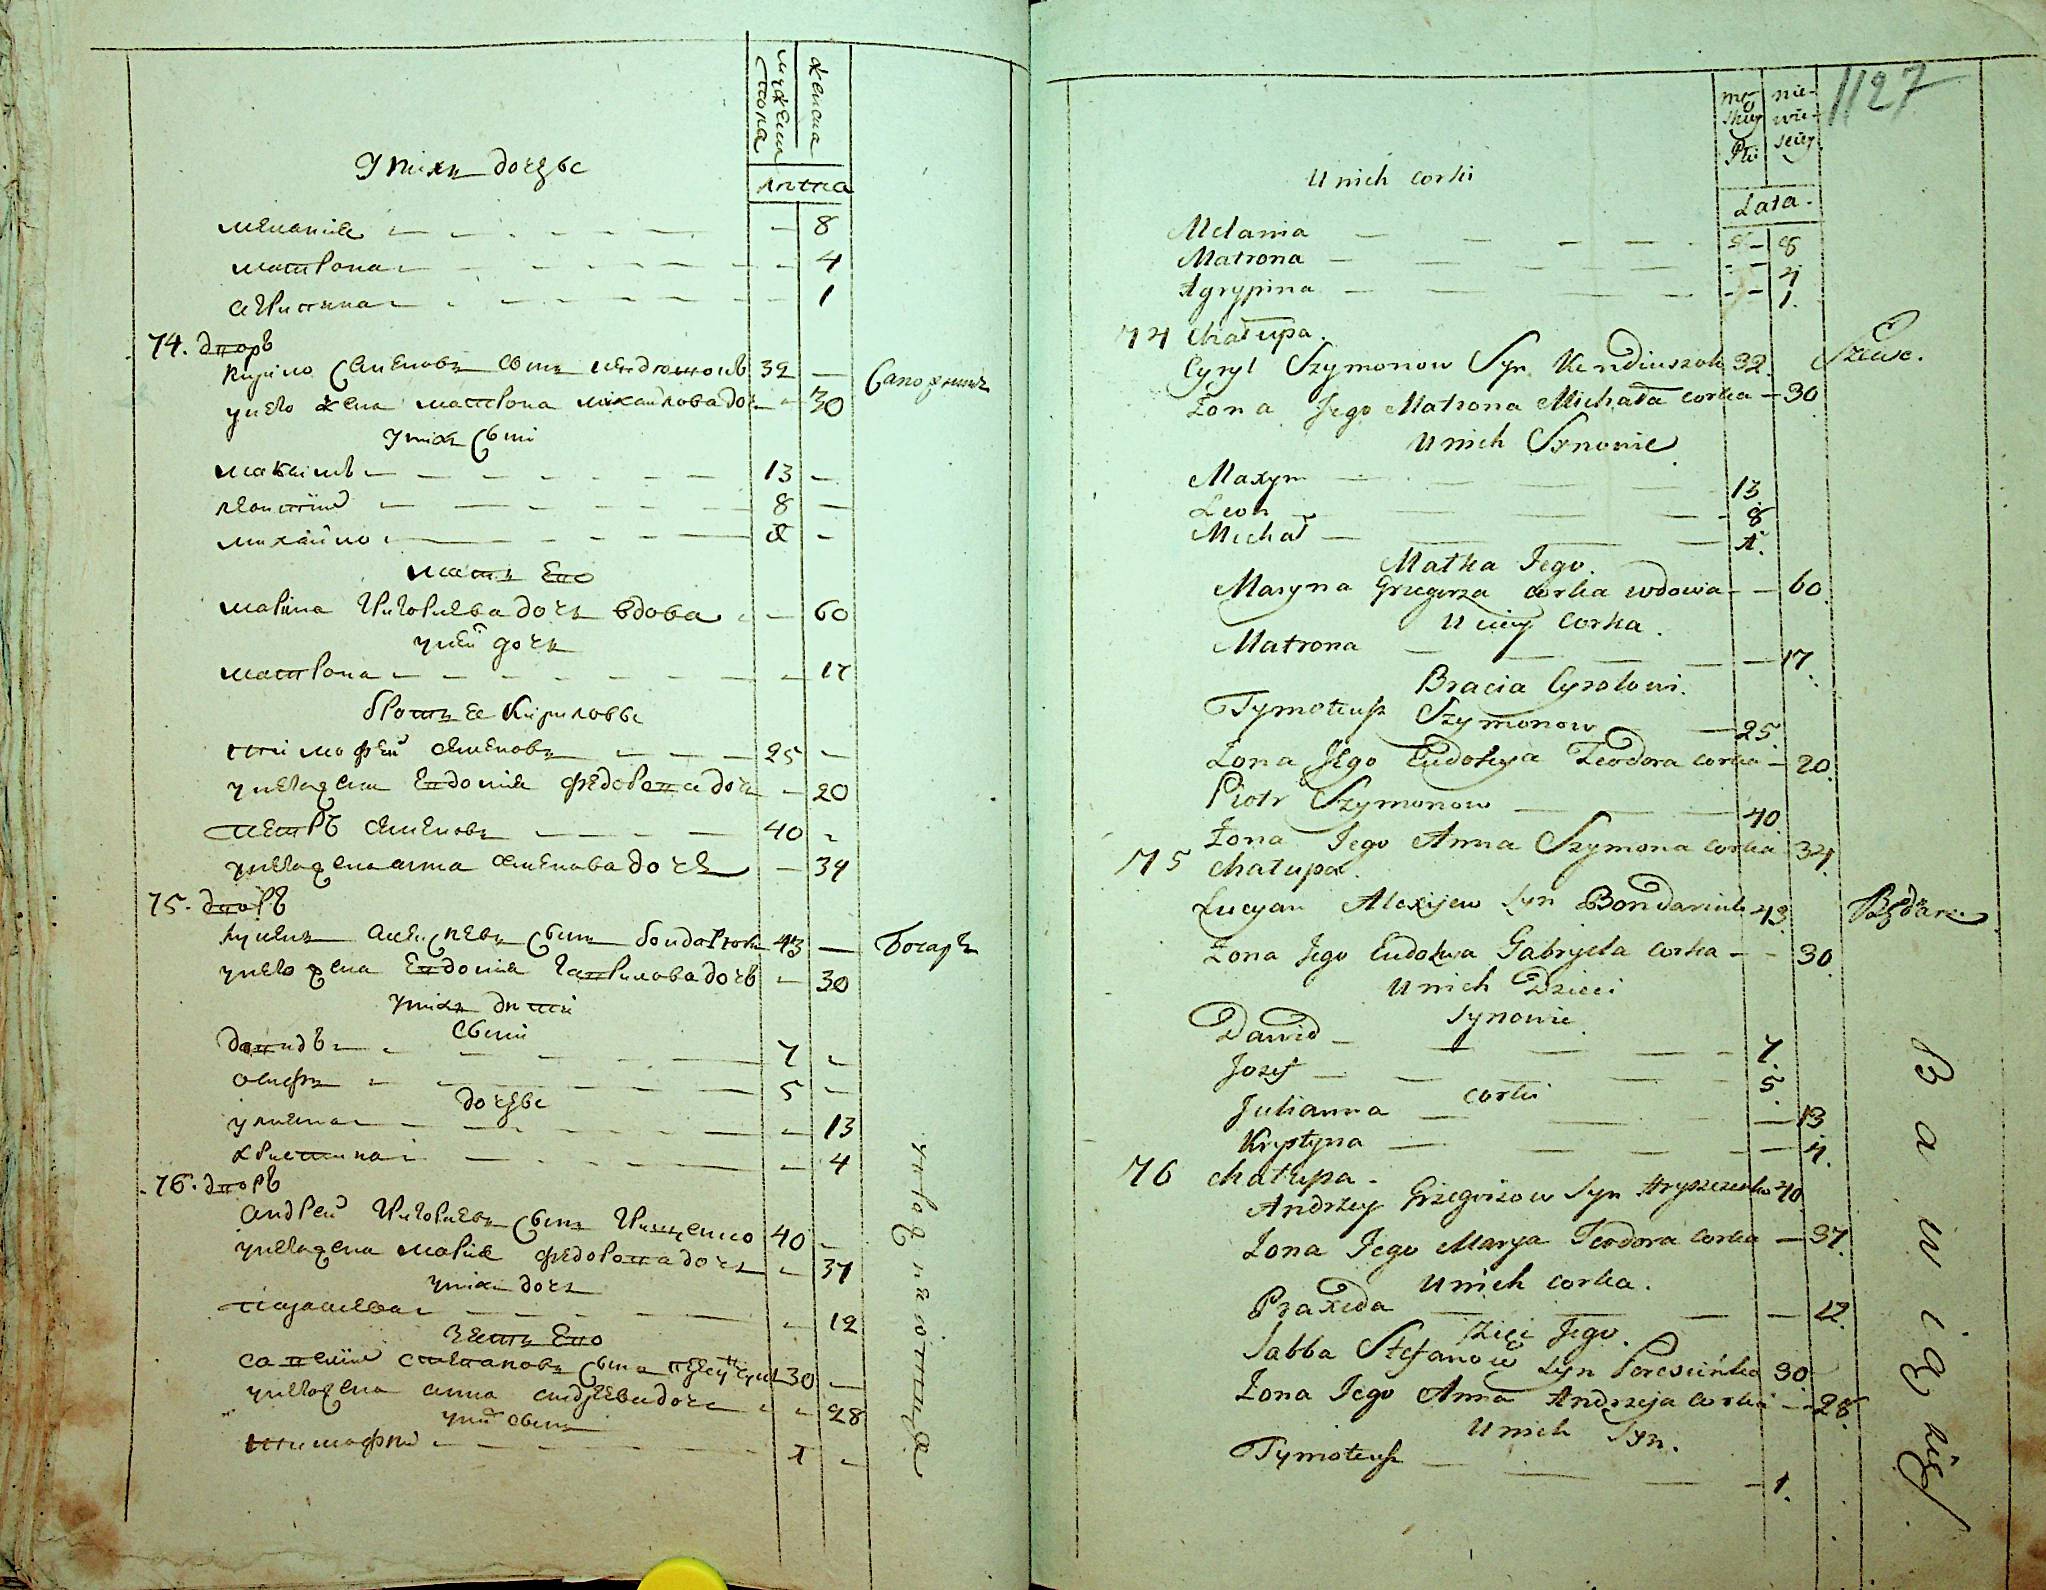 мужеска
пола
женска
лѣтка
У нихъ дочерѣ
меланія 8
матрона 4
агрипина 1
74. дворъ
Кирило Семеновъ сынъ кендюшокъ 32 —
у него жена матрона михайлова доч — 30
У нихъ сыни
максимъ 13 —
леонтій 8 —
михайло —
мать Его
марина григориева дочь вдова — 60
у ней дочь
матрона — 17
братья Кириловы
тимофей семеновъ 25 —
у него жена Евдокія федорова дочь — 20
петръ семеновъ 40 —
у него жена анна семенова дочь — 34
75. дворъ
лукянъ алексѣевъ сынъ бондарюкъ 43 —
у него жена Евдокія гаврилова дочь — 30
у нихъ дѣти
сыни
давидъ 7 —
осифъ 5 —
дочерѣ
улиана — 13
христина — 4
76. дворъ
андрей григориевъ сынъ грищенко 40 —
у него жена мария федорова дочь — 37
у нихъ дочь
— 12
зять Его
степановъ сынъ 30 —
у него жена анна андреева дочь — 28
у них сынъ
тимофей 1 —
1127
mę-
skiey
Płci
nie-
wie-
sciey
Lata.
U nich corki
Melania — 8
Matrona — 4
Agrypina — 1.
74 Chałupa.
Cyryl Szymonow Syn Kendiuszok 32. Szewc.
Zona Jego Matrona Michała corka — 30
U nich Synowie
Maxym 13
Leon — 8
Michał — 1.
Matka Jego.
Maryna Grzegorza corka wdowa — 60.
U niey Corka.
Matrona — 17.
Bracia Cyrylowi.
Tymoteusz Szymonow — 25.
Zona Jego Eudokya Teodora corka — 20.
Piotr Szymonow — 40.
Zona Jego Anna Szymona corka 34.
75 Chałupa.
Lucyan Alexijew Syn Bondariuk 43.
Zona Jego Eudokia Gabryela corka — 30.
U nich Dzieci
Synowie
Dawid — 7.
Jozef — 5.
corki
Julianna — 13.
Krystyna — 4.
76 Chałupa.
Andrzey Grzegorzow Syn Hryszczenko 40.
Zona Jego Marya Teodora corka — 37.
U nich corka.
Praxeda — 12.
Zięć Jego.
Sabba Stefanow Syn 30.
Zona Jego Anna Andrzeja corka — 28.
U nich Syn.
Tymoteusz — 1.